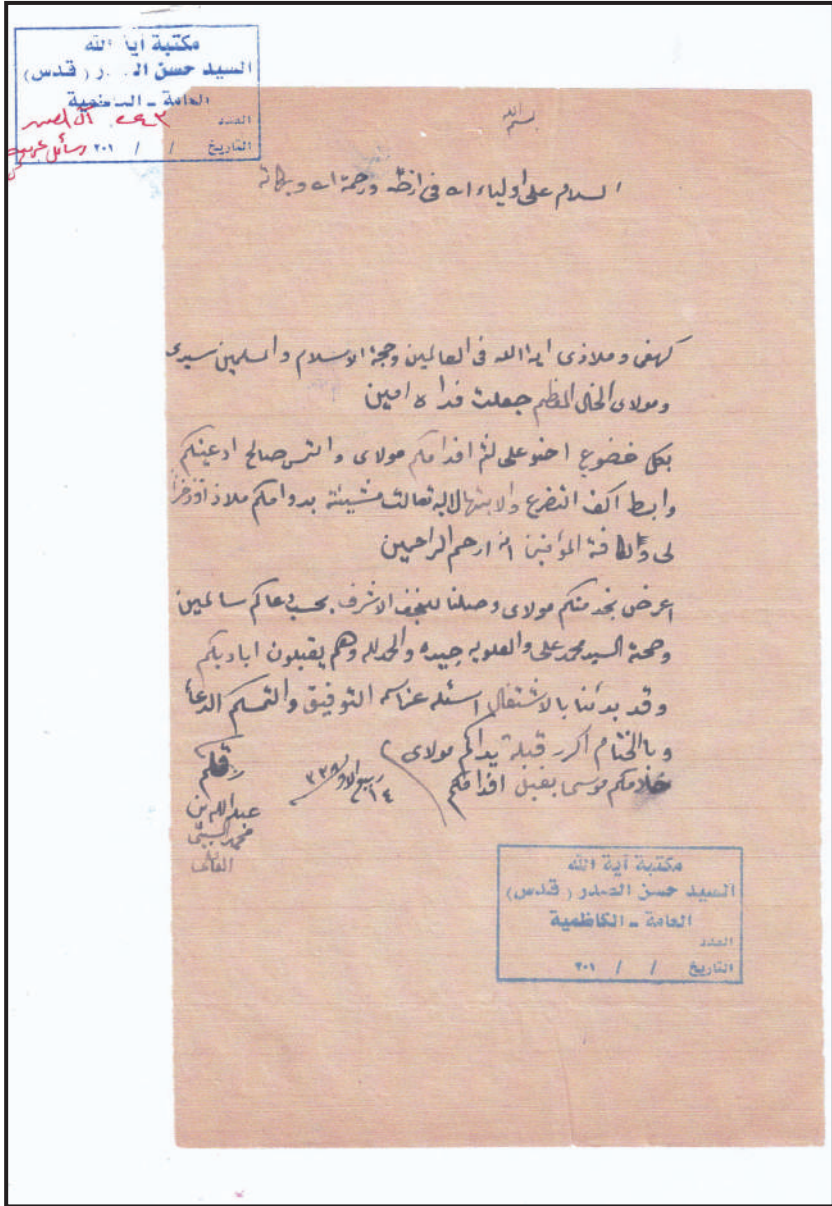 مكتبة آية الله
السيد حسن الـ در (قدس)
العامة ـ الكاظمية
العدد ٢٤٣ آل الصدر
التاريخ / / ٢٠١ رسائل
بسم الله
السلام على اولياء الله في ارضه ورحمة الله وبركاته
كهفى وملاذى اية الله فى العالمين وحجة الاسلام والمسلمين سيدى
ومولاى الخال المعظم جعلت فداه امين
بكل خضوع احنو على لثم اقدامكم مولاى والتمس صالح ادعيتكم
وابسط اكف التضرع والابتهال اليه تعالت مشيئته بدوامكم ملاذا وذخرا
لى ولكافة المؤمنين انه ارحم الراحمين
اعرض بخدمتكم مولاى وصلنا للنجف الاشرف بحسب دعاكم سالمين
وصحة السيد محمد على والعلويه جيده والحمد لله وهم يقبلون اياديكم
وقد بدئنا بالاشتغال اسئله عز اسمه التوفيق والتمسكم الدعا
وبالختام اكرر قبلة يداكم مولاى
خادمكم موسى يقبل اقدامكم
١٤ ربيع الاول ٣٣٨
بقلم
عبد الله بن
محمد السبيتى
العاملى
مكتبة آية الله
السيد حسن الصدر (قدس)
العامة ـ الكاظمية
العدد
التاريخ / / ٢٠١